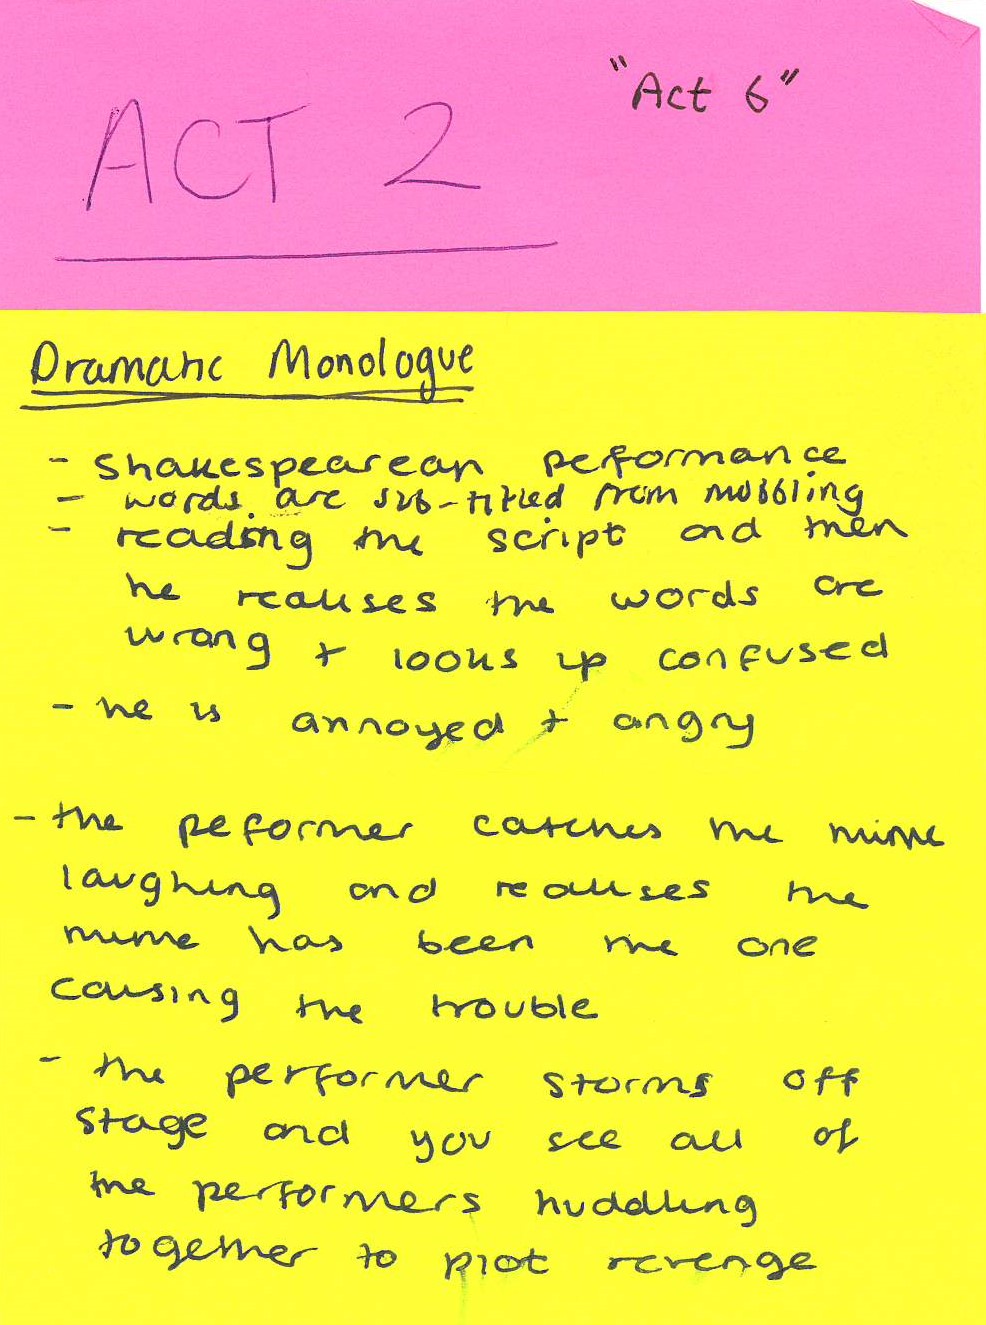 ACT 2
"Act 6"
Dramatic Monologue
- Shakespearean peformance
- words are sub-titled from mobbling
- reading the script and then
he realises the words are
wrong + looks up confused
- he is annoyed + angry
- the peformer catches the mime
laughing and realises the
mime has been the one
causing the trouble
- the performer storms off
stage and you see all of
the performers huddling
together to plot revenge